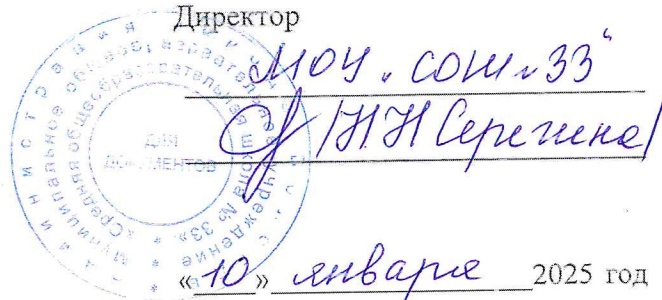 Директор
МОУ „СОШ №33"
/Н.Н Сережина/
«10» января 2025 год
Муниципальное общеобразовательное учреждение
«Средняя общеобразовательная школа № 33»
ДЛЯ
ДОКУМЕНТОВ